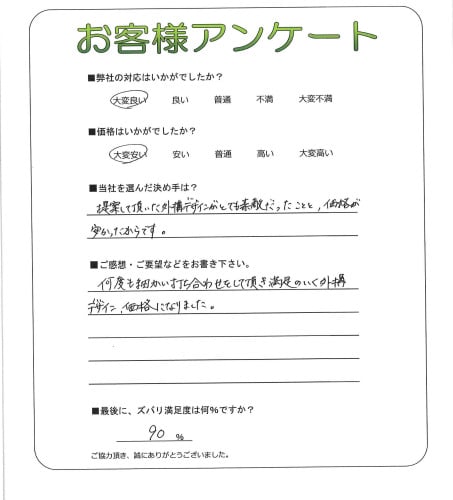 お客様アンケート
■弊社の対応はいかがでしたか？
大変良い 良い 普通 不満 大変不満
■価格はいかがでしたか？
大変安い 安い 普通 高い 大変高い
■当社を選んだ決め手は？
提案して頂いた外構デザインがとても素敵だったことと、価格が
安かったからです。
■ご感想・ご要望などをお書き下さい。
何度も細かい打ち合わせをして頂き満足のいく外構
デザイン、価格になりました。
■最後に、ズバリ満足度は何%ですか？
90 %
ご協力頂き、誠にありがとうございました。